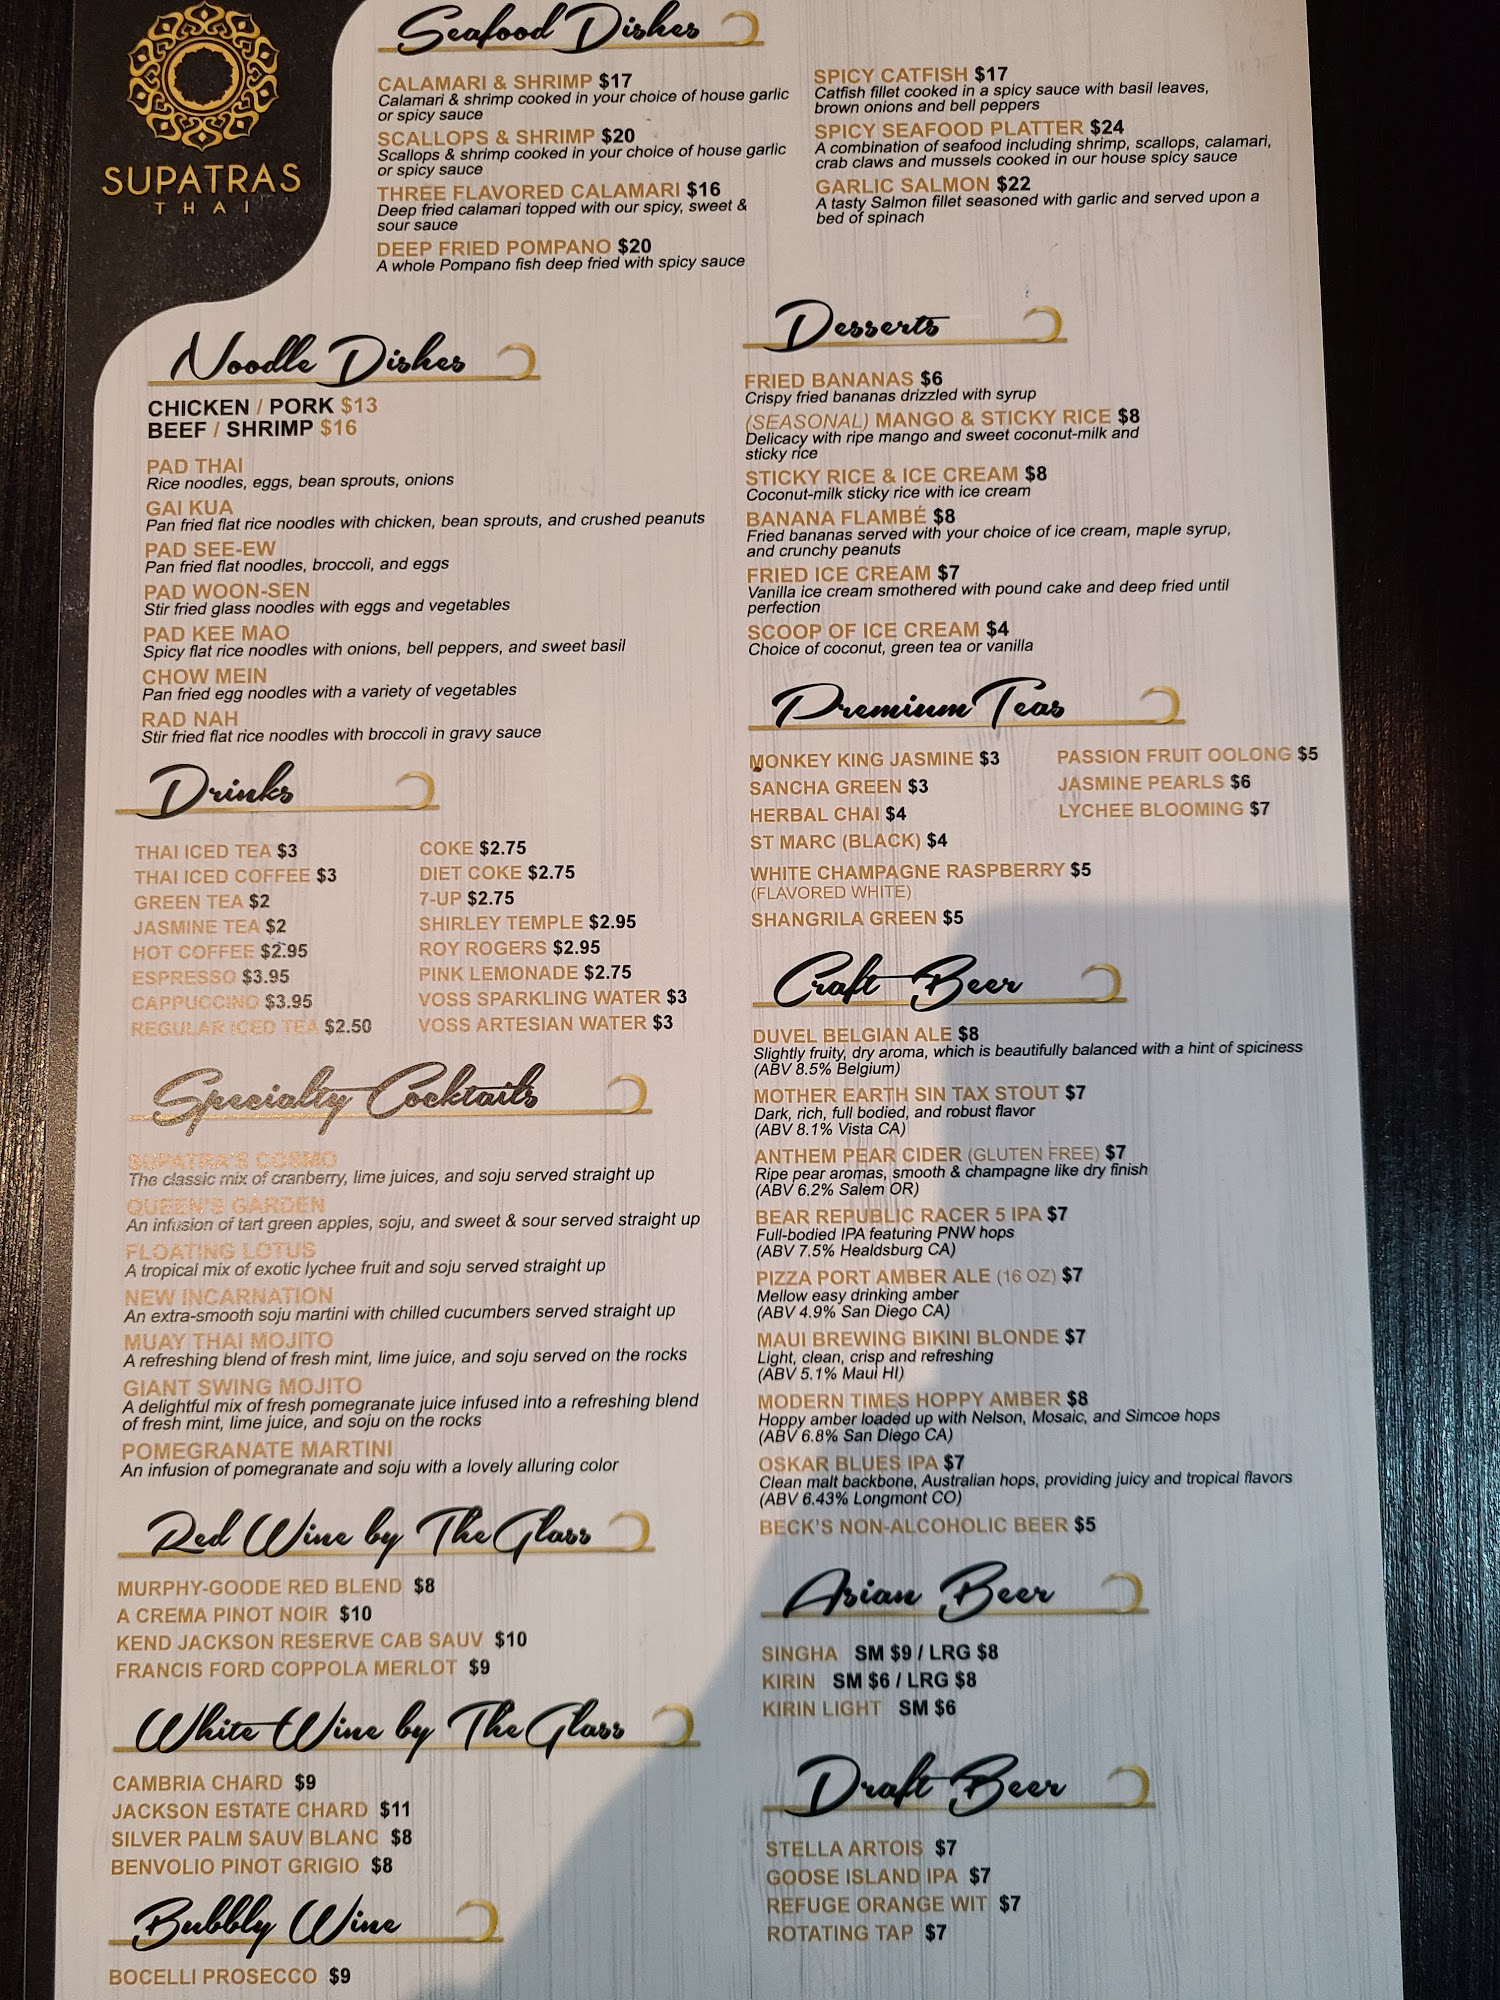 SUPATRAS
THAI
Seafood Dishes
CALAMARI & SHRIMP $17
Calamari & shrimp cooked in your choice of house garlic
or spicy sauce
SCALLOPS & SHRIMP $20
Scallops & shrimp cooked in your choice of house garlic
or spicy sauce
THREE FLAVORED CALAMARI $16
Deep fried calamari topped with our spicy, sweet &
sour sauce
DEEP FRIED POMPANO $20
A whole Pompano fish deep fried with spicy sauce
SPICY CATFISH $17
Catfish fillet cooked in a spicy sauce with basil leaves,
brown onions and bell peppers
SPICY SEAFOOD PLATTER $24
A combination of seafood including shrimp, scallops, calamari,
crab claws and mussels cooked in our house spicy sauce
GARLIC SALMON $22
A tasty Salmon fillet seasoned with garlic and served upon a
bed of spinach
Noodle Dishes
CHICKEN / PORK $13
BEEF / SHRIMP $16
PAD THAI
Rice noodles, eggs, bean sprouts, onions
GAI KUA
Pan fried flat rice noodles with chicken, bean sprouts, and crushed peanuts
PAD SEE-EW
Pan fried flat noodles, broccoli, and eggs
PAD WOON-SEN
Stir fried glass noodles with eggs and vegetables
PAD KEE MAO
Spicy flat rice noodles with onions, bell peppers, and sweet basil
CHOW MEIN
Pan fried egg noodles with a variety of vegetables
RAD NAH
Stir fried flat rice noodles with broccoli in gravy sauce
Drinks
THAI ICED TEA $3
THAI ICED COFFEE $3
GREEN TEA $2
JASMINE TEA $2
HOT COFFEE $2.95
ESPRESSO $3.95
CAPPUCCINO $3.95
REGULAR ICED TEA $2.50
COKE $2.75
DIET COKE $2.75
7-UP $2.75
SHIRLEY TEMPLE $2.95
ROY ROGERS $2.95
PINK LEMONADE $2.75
VOSS SPARKLING WATER $3
VOSS ARTESIAN WATER $3
Specialty Cocktails
SUPATRA'S COSMO
The classic mix of cranberry, lime juices, and soju served straight up
QUEEN'S GARDEN
An infusion of tart green apples, soju, and sweet & sour served straight up
FLOATING LOTUS
A tropical mix of exotic lychee fruit and soju served straight up
NEW INCARNATION
An extra-smooth soju martini with chilled cucumbers served straight up
MUAY THAI MOJITO
A refreshing blend of fresh mint, lime juice, and soju served on the rocks
GIANT SWING MOJITO
A delightful mix of fresh pomegranate juice infused into a refreshing blend
of fresh mint, lime juice, and soju on the rocks
POMEGRANATE MARTINI
An infusion of pomegranate and soju with a lovely alluring color
Red Wine by The Glass
MURPHY-GOODE RED BLEND $8
A CREMA PINOT NOIR $10
KEND JACKSON RESERVE CAB SAUV $10
FRANCIS FORD COPPOLA MERLOT $9
White Wine by The Glass
CAMBRIA CHARD $9
JACKSON ESTATE CHARD $11
SILVER PALM SAUV BLANC $8
BENVOLIO PINOT GRIGIO $8
Bubbly Wine
BOCELLI PROSECCO $9
Desserts
FRIED BANANAS $6
Crispy fried bananas drizzled with syrup
(SEASONAL) MANGO & STICKY RICE $8
Delicacy with ripe mango and sweet coconut-milk and
sticky rice
STICKY RICE & ICE CREAM $8
Coconut-milk sticky rice with ice cream
BANANA FLAMBÉ $8
Fried bananas served with your choice of ice cream, maple syrup,
and crunchy peanuts
FRIED ICE CREAM $7
Vanilla ice cream smothered with pound cake and deep fried until
perfection
SCOOP OF ICE CREAM $4
Choice of coconut, green tea or vanilla
Premium Teas
MONKEY KING JASMINE $3
SANCHA GREEN $3
HERBAL CHAI $4
ST MARC (BLACK) $4
WHITE CHAMPAGNE RASPBERRY $5
(FLAVORED WHITE)
SHANGRILA GREEN $5
PASSION FRUIT OOLONG $5
JASMINE PEARLS $6
LYCHEE BLOOMING $7
Craft Beer
DUVEL BELGIAN ALE $8
Slightly fruity, dry aroma, which is beautifully balanced with a hint of spiciness
(ABV 8.5% Belgium)
MOTHER EARTH SIN TAX STOUT $7
Dark, rich, full bodied, and robust flavor
(ABV 8.1% Vista CA)
ANTHEM PEAR CIDER (GLUTEN FREE) $7
Ripe pear aromas, smooth & champagne like dry finish
(ABV 6.2% Salem OR)
BEAR REPUBLIC RACER 5 IPA $7
Full-bodied IPA featuring PNW hops
(ABV 7.5% Healdsburg CA)
PIZZA PORT AMBER ALE (16 OZ) $7
Mellow easy drinking amber
(ABV 4.9% San Diego CA)
MAUI BREWING BIKINI BLONDE $7
Light, clean, crisp and refreshing
(ABV 5.1% Maui HI)
MODERN TIMES HOPPY AMBER $8
Hoppy amber loaded up with Nelson, Mosaic, and Simcoe hops
(ABV 6.8% San Diego CA)
OSKAR BLUES IPA $7
Clean malt backbone, Australian hops, providing juicy and tropical flavors
(ABV 6.43% Longmont CO)
BECK'S NON-ALCOHOLIC BEER $5
Asian Beer
SINGHA SM $9 / LRG $8
KIRIN SM $6 / LRG $8
KIRIN LIGHT SM $6
Draft Beer
STELLA ARTOIS $7
GOOSE ISLAND IPA $7
REFUGE ORANGE WIT $7
ROTATING TAP $7